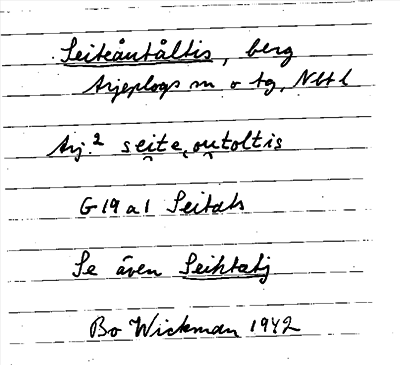 Seiteåutåltis, berg
Arjeplogs sn o tg, Nbt l
Arj.² seite̮outoltis
G 19 a 1 Seitats
Se även Seihtatj
Bo Wickman 1942